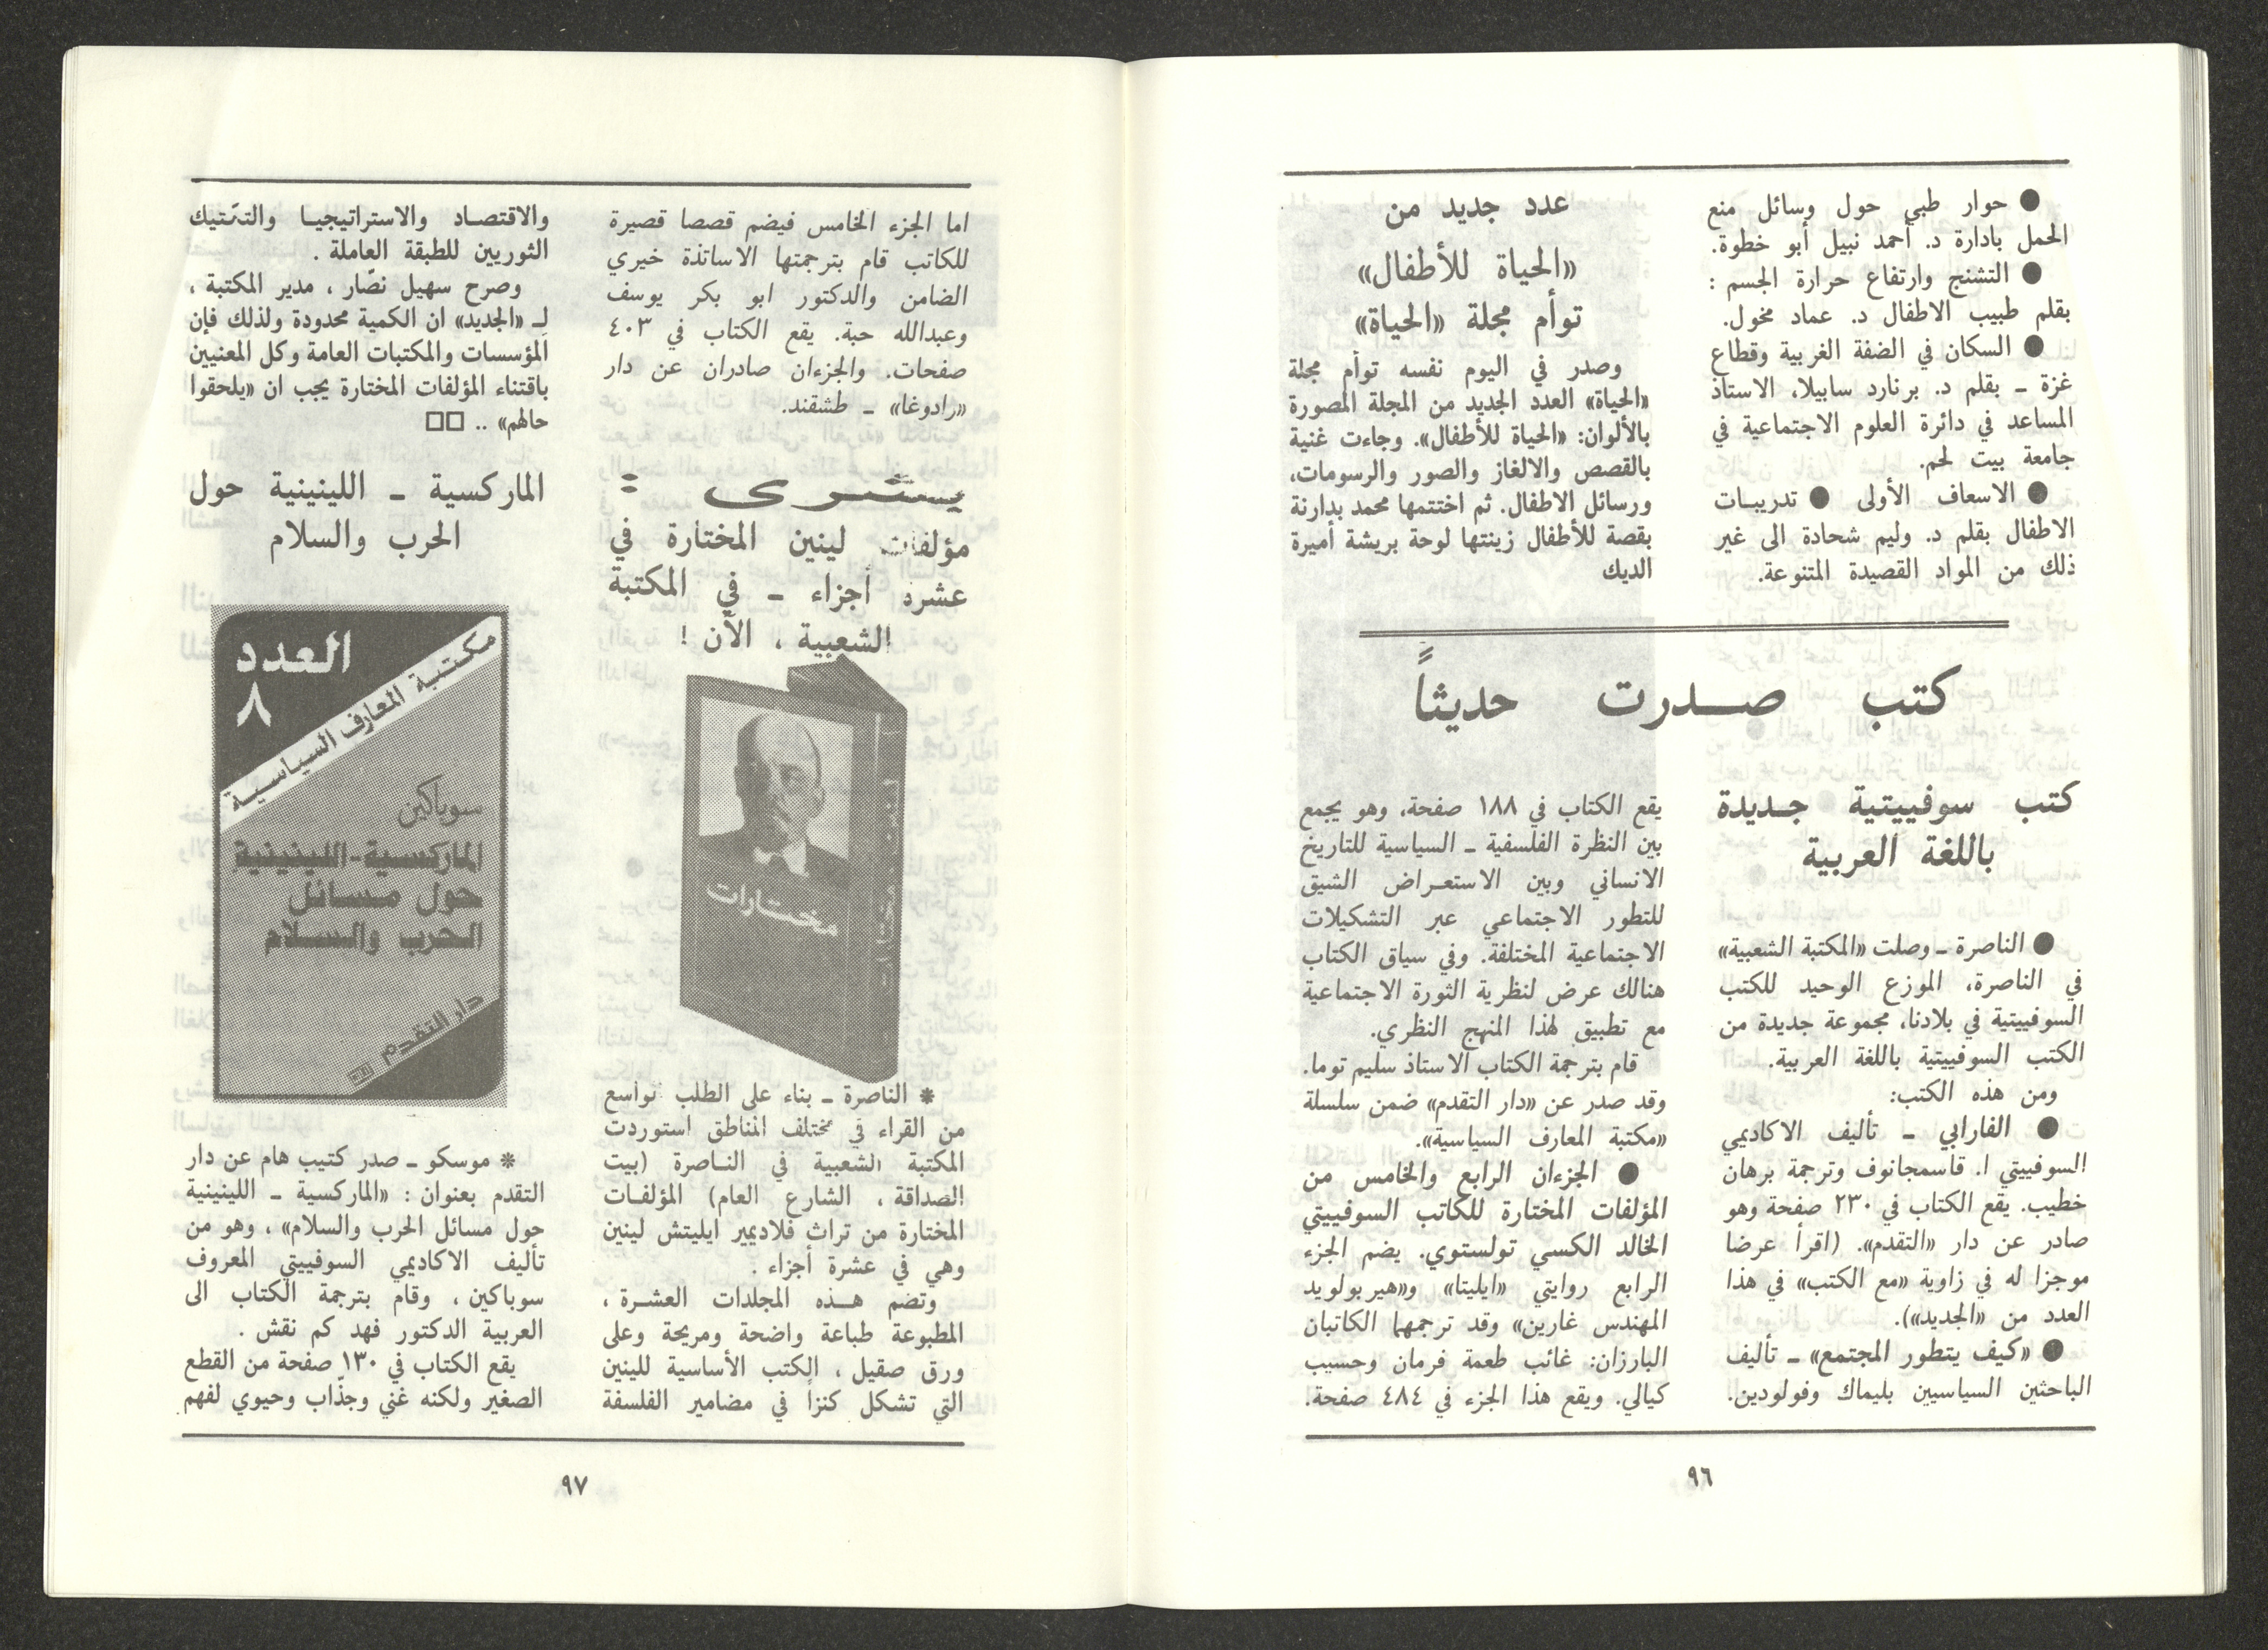 ● حوار طبي حول وسائل منع
الحمل بادارة د. أحمد نبيل أبو خطوة.
● التشنج وارتفاع حرارة الجسم :
بقلم طبيب الاطفال د. عماد مخول.
● السكان في الضفة الغربية وقطاع
غزة ـ بقلم د. برنارد سابيلا، الاستاذ
المساعد في دائرة العلوم الاجتماعية في
جامعة بيت لحم.
● الاسعاف الأولى ● تدريبات
الاطفال بقلم د. وليم شحادة الى غير
ذلك من المواد القصيدة المتنوعة.
عدد جديد من
«الحياة للأطفال»
توأم مجلة «الحياة»
وصدر في اليوم نفسه توأم مجلة
«الحياة» العدد الجديد من المجلة المصورة
بالألوان: «الحياة للأطفال». وجاءت غنية
بالقصص والالغاز والصور والرسومات،
ورسائل الاطفال. ثم اختتمها محمد بدارنة
بقصة للأطفال زينتها لوحة بريشة أميرة
الديك
كتب صدرت حديثاً
كتب سوفييتية جديدة
باللغة العربية
● الناصرة ـ وصلت «المكتبة الشعبية»
في الناصرة، الموزع الوحيد للكتب
السوفييتية في بلادنا، مجموعة جديدة من
الكتب السوفييتية باللغة العربية.
ومن هذه الكتب:
● الفارابي ـ تأليف الاكاديمي
السوفييتي ا. قاسمجانوف وترجمة برهان
خطيب. يقع الكتاب في ٢٣٠ صفحة وهو
صادر عن دار «التقدم». (اقرأ عرضا
موجزا له في زاوية «مع الكتب» في هذا
العدد من «الجديد»).
● «كيف يتطور المجتمع» ـ تأليف
الباحثين السياسيين بليماك وفولودين.
يقع الكتاب في ١٨٨ صفحة، وهو يجمع
بين النظرة الفلسفية ـ السياسية للتاريخ
الانساني وبين الاستعراض الشيق
للتطور الاجتماعي عبر التشكيلات
الاجتماعية المختلفة. وفي سياق الكتاب
هنالك عرض لنظرية الثورة الاجتماعية
مع تطبيق لهذا المنهج النظري.
قام بترجمة الكتاب الاستاذ سليم توما.
وقد صدر عن «دار التقدم» ضمن سلسلة
«مكتبة المعارف السياسية».
● الجزءان الرابع والخامس من
المؤلفات المختارة للكاتب السوفييتي
الخالد الكسي تولستوي. يضم الجزء
الرابع روايتي «ايليتا» و«هيربولويد
المهندس غارين» وقد ترجمها الكاتبان
البارزان: غائب طعمة فرمان وحسيب
كيالي. ويقع هذا الجزء في ٤٨٤ صفحة.
٩٦
اما الجزء الخامس فيضم قصصا قصيرة
للكاتب قام بترجمتها الاساتذة خيري
الضامن والدكتور ابو بكر يوسف
وعبدالله حبة. يقع الكتاب في ٤٠٣
صفحات. والجزءان صادران عن دار
«رادوغا» ـ طشقند.
يشرى :
مؤلفات لينين المختارة في
عشرة أجزاء ـ في المكتبة
الشعبية ، الآن !
مختارات
* الناصرة ـ بناء على الطلب الواسع
من القراء في مختلف المناطق استوردت
المكتبة الشعبية في الناصرة (بيت
الصداقة ، الشارع العام) المؤلفات
المختارة من تراث فلاديمير ايليتش لينين
وهي في عشرة أجزاء .
وتضم هذه المجلدات العشرة ،
المطبوعة طباعة واضحة ومريحة وعلى
ورق صقيل ، الكتب الأساسية للينين
التي تشكل كنزاً في مضامير الفلسفة
والاقتصاد والاستراتيجيا والتكتيك
الثوريين للطبقة العاملة .
وصرح سهيل نصّار ، مدير المكتبة ،
لـ «الجديد» ان الكمية محدودة ولذلك فإن
المؤسسات والمكتبات العامة وكل المعنيين
باقتناء المؤلفات المختارة يجب ان «يلحقوا
حالهم» .. □□
الماركسية ـ اللينينية حول
الحرب والسلام
العدد
٨
مكتبة المعارف السياسية
سوباكين
الماركسية-اللينينية
حول مسائل
الحرب والسلام
دار التقدم
* موسكو ـ صدر كتيب هام عن دار
التقدم بعنوان : «الماركسية ـ اللينينية
حول مسائل الحرب والسلام» ، وهو من
تأليف الاكاديمي السوفييتي المعروف
سوباكين ، وقام بترجمة الكتاب الى
العربية الدكتور فهد كم نقش .
يقع الكتاب في ١٣٠ صفحة من القطع
الصغير ولكنه غني وجذّاب وحيوي لفهم
٩٧